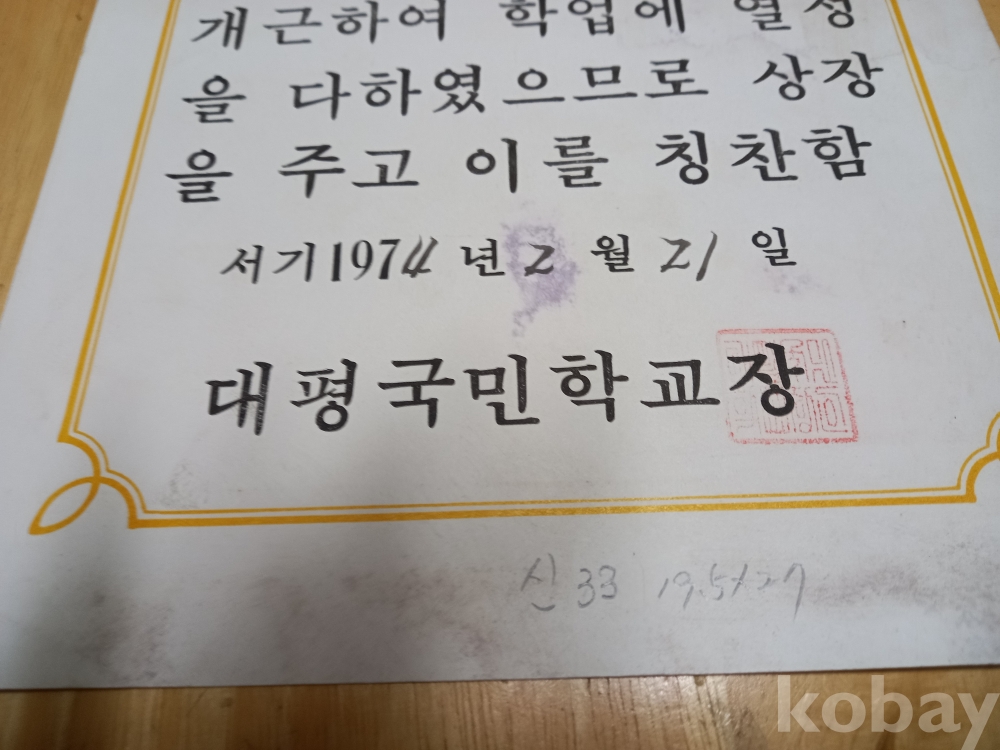 개근하여 학업에 열성
을 다하였으므로 상장
을 주고 이를 칭찬함
서기1974년 2월 21일
대평국민학교장
신33 19.5X27
kobay